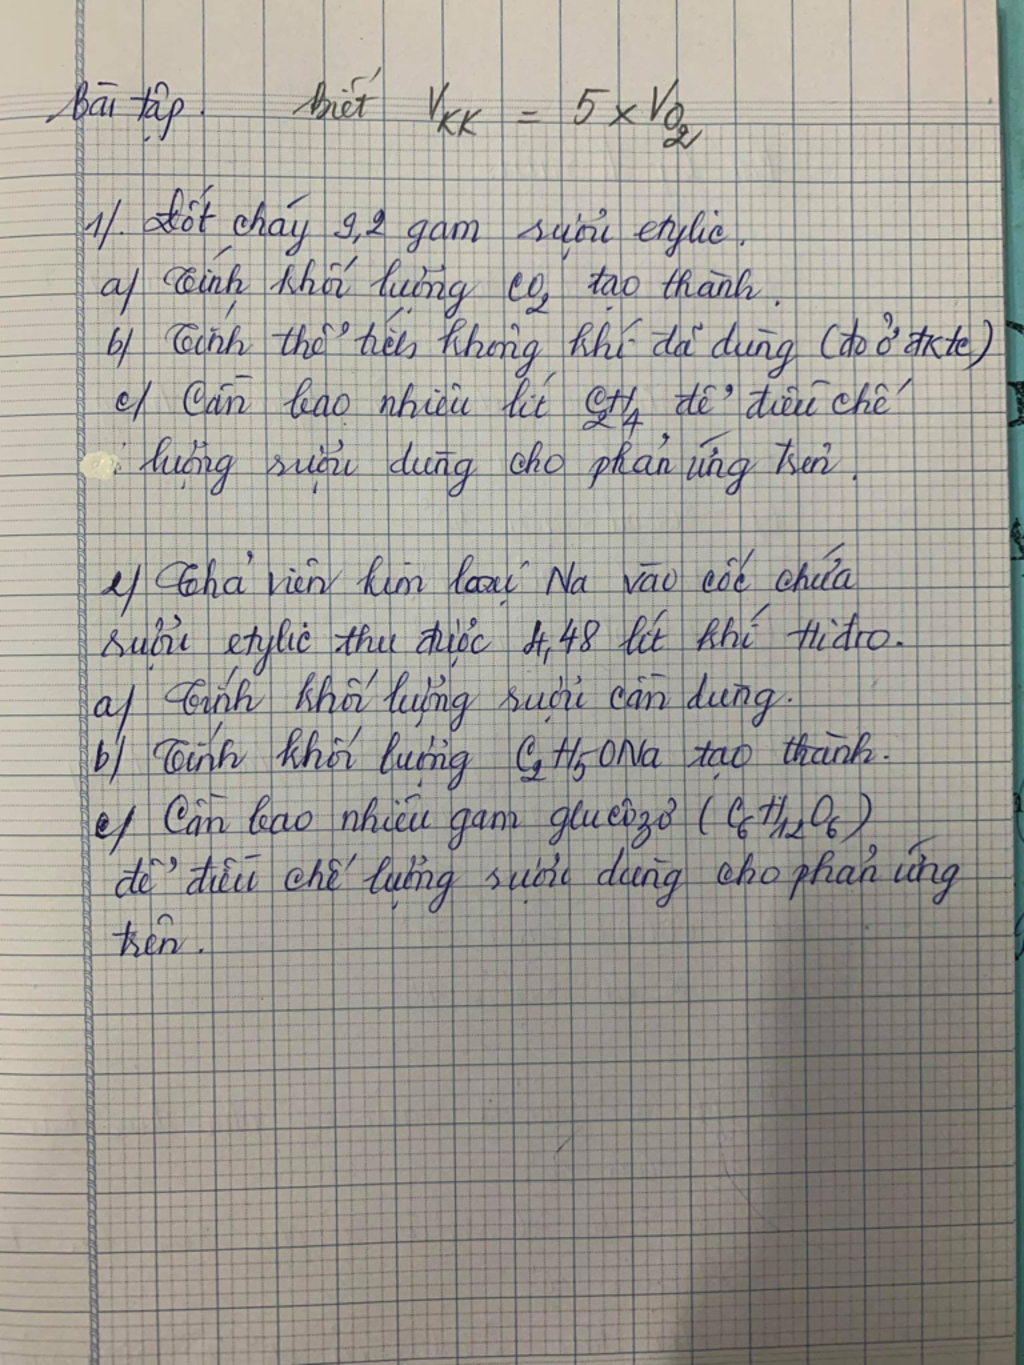 Bài tập. Biết V_KK = 5 x V_O₂
1/. Đốt cháy 9,2 gam rượu etylic.
a/ Tính khối lượng CO₂ tạo thành.
b/ Tính thể tích không khí đã dùng (đo ở đktc)
c/ Cần bao nhiêu lít C₂H₄ để điều chế
lượng rượu dùng cho phản ứng trên.
2/ Thả viên kim loại Na vào cốc chứa
rượu etylic thu được 4,48 lít khí Hiđro.
a/ Tính khối lượng rượu cần dùng.
b/ Tính khối lượng C₂H₅ONa tạo thành.
c/ Cần bao nhiêu gam glucôzơ (C₆H₁₂O₆)
để điều chế lượng rượu dùng cho phản ứng
trên.